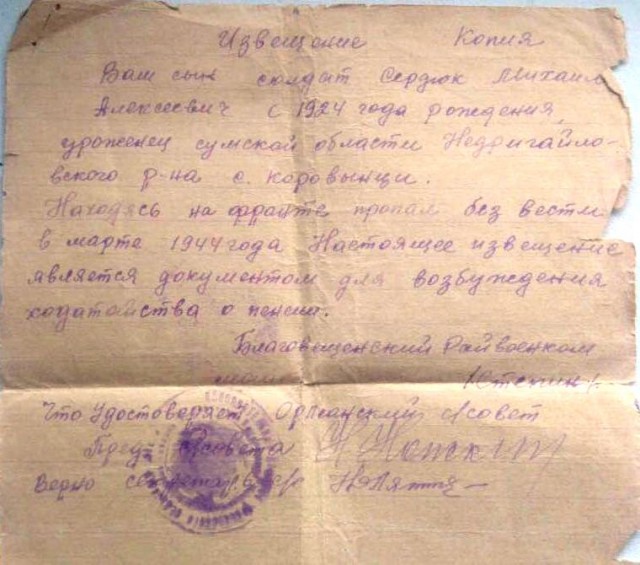 Извещение Копия
Ваш сын солдат Сердюк Михаил
Алексеевич с 1924 года рождения,
уроженец сумской области Недригайло-
вского р-на с. Коровынци.
Находясь на фронте пропал без вести
в марте 1944 года Настоящее извещение
является документом для возбуждения
ходатайства о пенсии.
Благовещенский Райвоенком
Что Удостоверяет с/совет
Пред. с/совета
Верно секретарь с/с